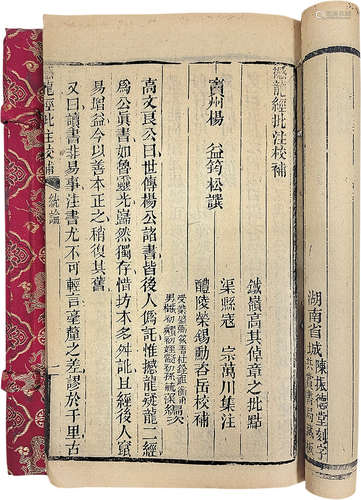 撼龍經批注校補
竇州楊　益筠松譔
鐵嶺高其倬章之批點
渠縣寇　宗萬川集注
醴陵榮錫勳吞岳校補
高文良公曰世傳楊公諸書皆後人僞託惟撼龍疑龍二經
爲公眞書如魯靈光巋然獨存惜坊本多舛訛且經後人竄
易增益今以善本正之稍復其舊
又曰讀書非易事注書尤不可輕言毫釐之差謬於千里古
撼龍經批注校補
統論
湖南省城陳振德堂刻字